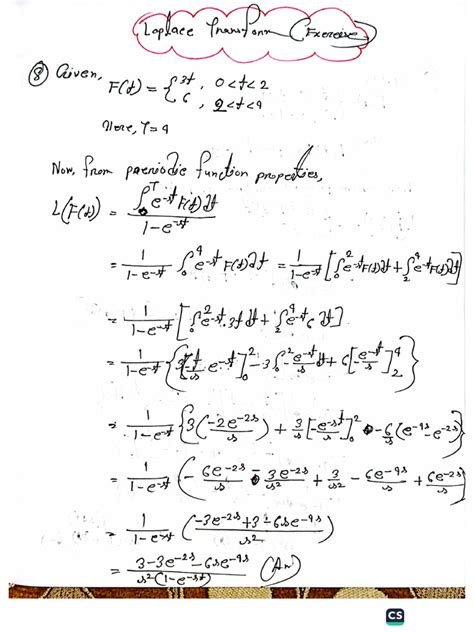 Laplace Transform (Exercise)
⑧ Given, F(t) = { 3t, 0<t<2
6, 2<t<4
Here, T=4
Now, from paeriodic function properties,
L(F(t)) = ∫₀ᵀ e^-st F(t)dt / 1-e^-sT
= 1/1-e^-sT ∫₀⁴ e^-st F(t)dt = 1/1-e^-sT [∫₀² e^-st F(t)dt + ∫₂⁴ e^-st F(t)dt]
= 1/1-e^-sT [∫₀² e^-st . 3t dt + ∫₂⁴ e^-st 6 dt]
= 1/1-e^-sT {3[t/-s e^-st]₀² - 3∫₀² e^-st/-s dt + 6[e^-st/-s]₂⁴}
= 1/1-e^-sT {3(-2e^-2s/s) + 3/s [-e^-st/s]₀² - 6/s (e^-4s - e^-2s)}
= 1/1-e^-sT (- 6e^-2s/s - 3e^-2s/s² + 3/s² - 6e^-4s/s + 6e^-2s/s)
= 1/1-e^-sT (-3e^-2s+3-6se^-4s / s²)
= 3-3e^-2s-6se^-4s / s²(1-e^-sT) (An)
CS